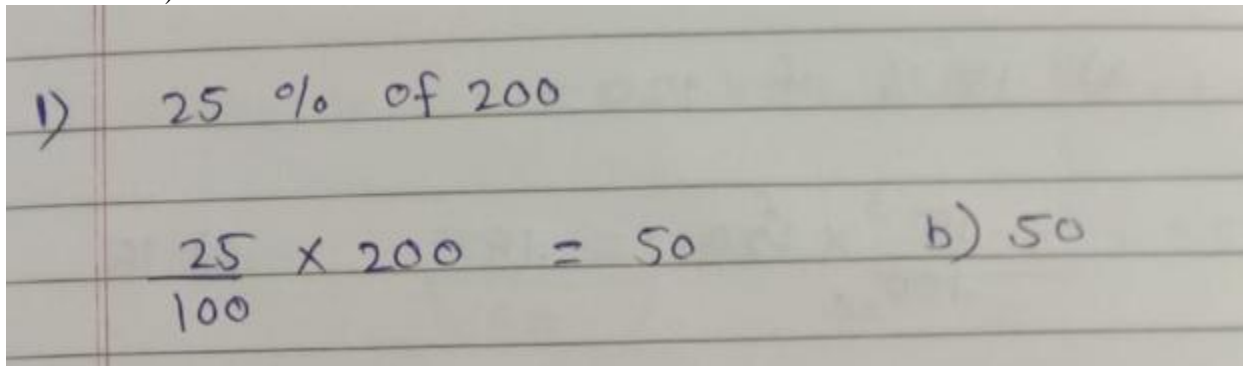 1) 25 % of 200
25/100 × 200 = 50 b) 50